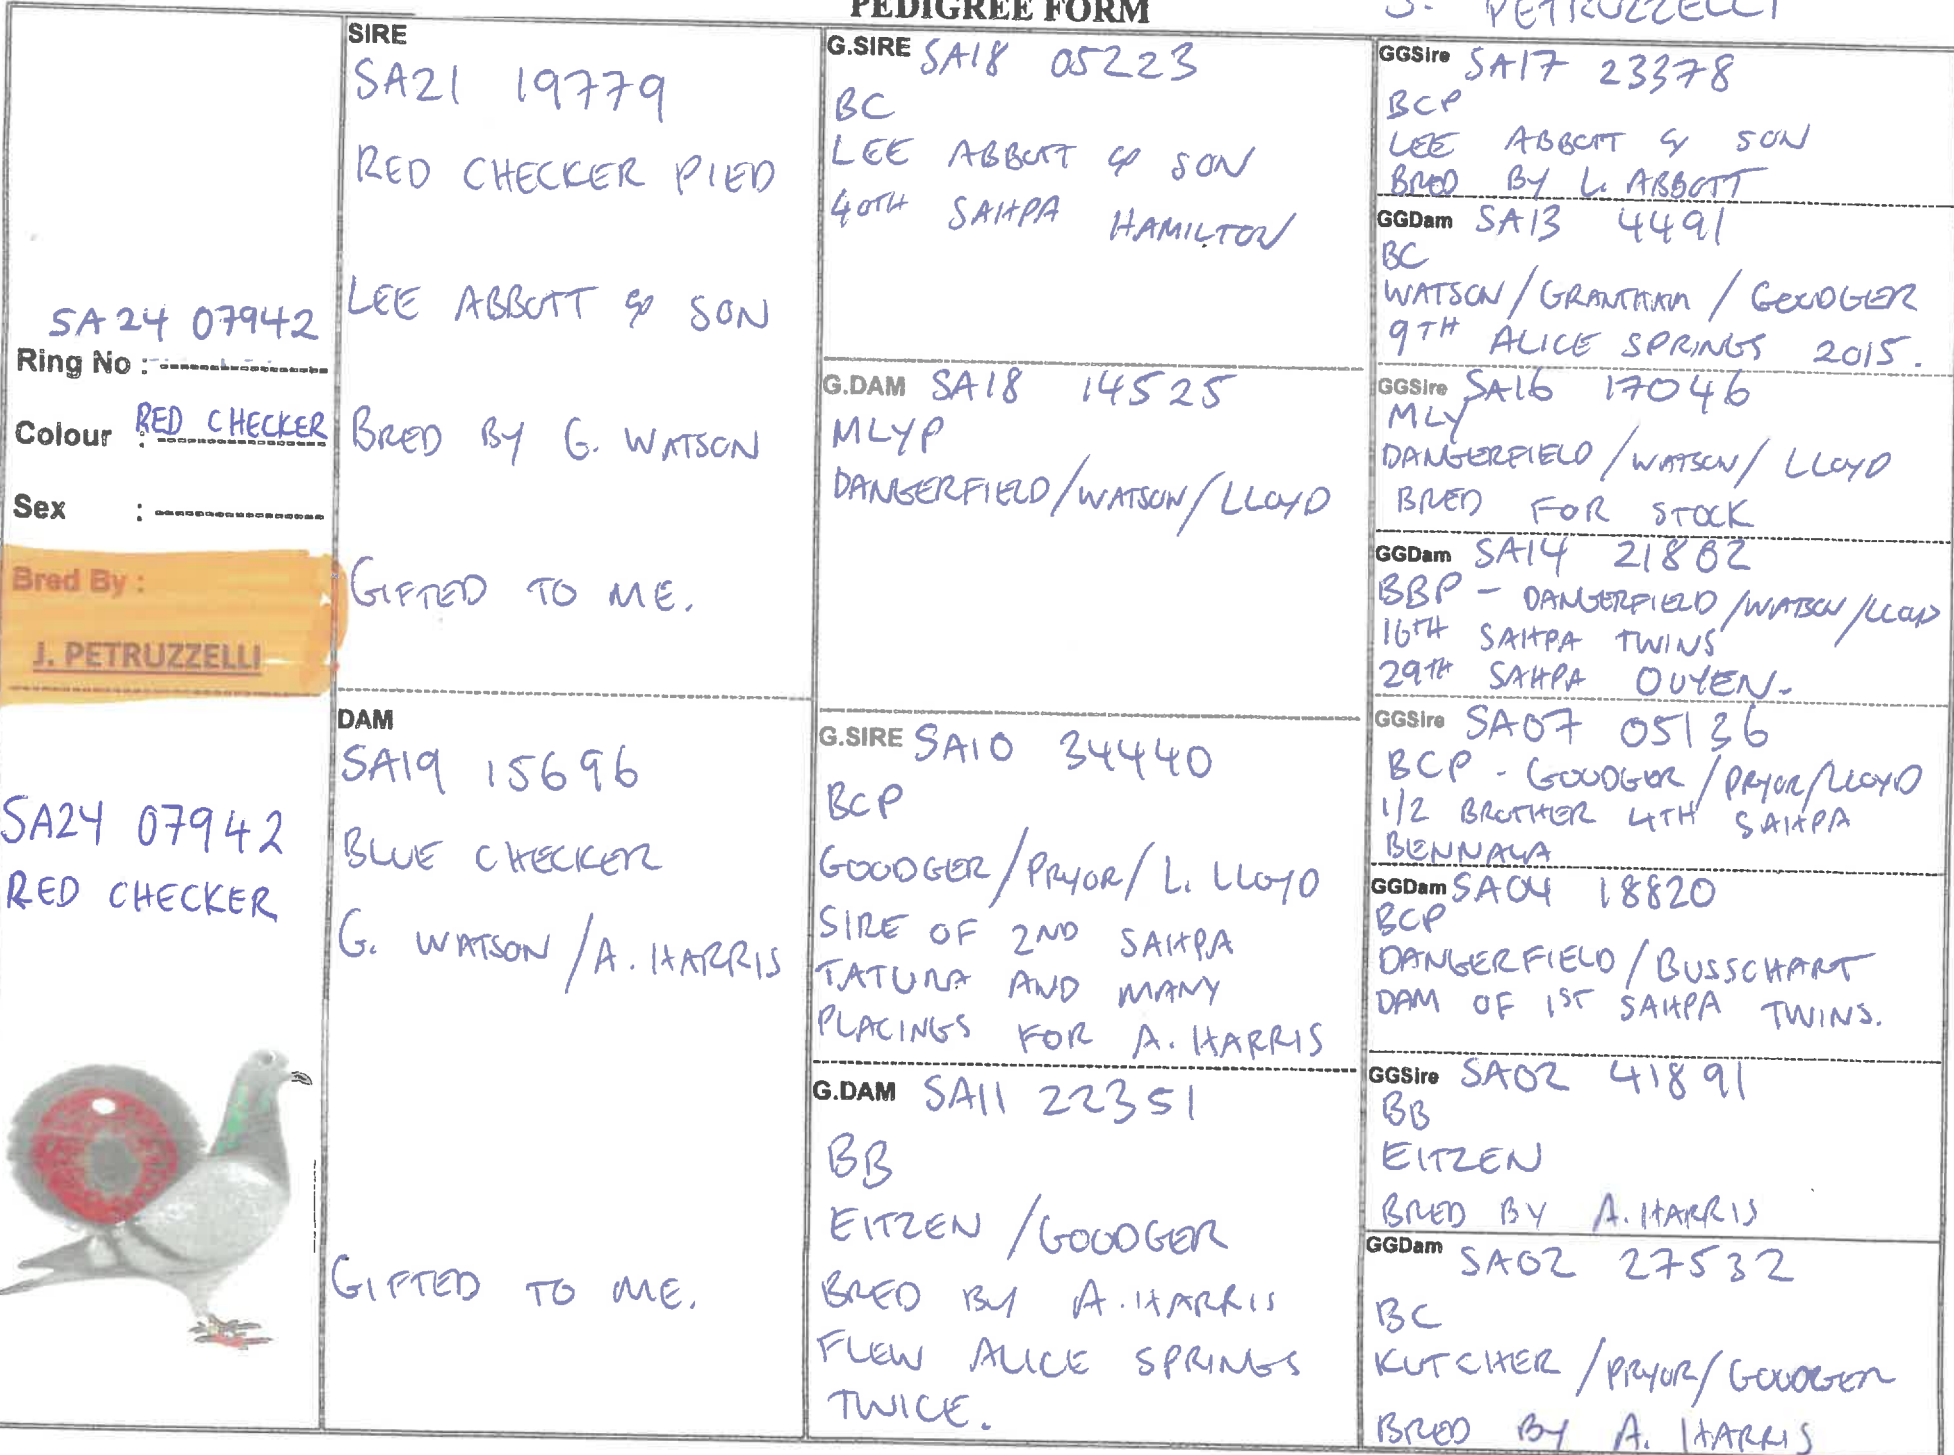 PEDIGREE FORM
J. PETRUZZELLI
SA24 07942
Ring No :
Colour : RED CHECKER
Sex :
Bred By :
J. PETRUZZELLI
SA24 07942
RED CHECKER
SIRE
SA21 19779
RED CHECKER PIED
LEE ABBOTT & SON
BRED BY G. WATSON
GIFTED TO ME.
DAM
SA19 15696
BLUE CHECKER
G. WATSON / A. HARRIS
GIFTED TO ME.
G.SIRE SA18 05223
BC
LEE ABBOTT & SON
40TH SAHPA HAMILTON
G.DAM SA18 14525
MLYP
DANGERFIELD/WATSON/LLOYD
G.SIRE SA10 34440
BCP
GOODGER/PRYOR/L. LLOYD
SIRE OF 2ND SAHPA
TATURA AND MANY
PLACINGS FOR A. HARRIS
G.DAM SA11 22351
BB
EITZEN /GOODGER
BRED BY A. HARRIS
FLEW ALICE SPRINGS
TWICE.
GGSire SA17 23378
BCP
LEE ABBOTT & SON
BRED BY L. ABBOTT
GGDam SA13 4491
BC
WATSON/GRANTHAM/GOODGER
9TH ALICE SPRINGS 2015.
GGSire SA16 17046
MLY
DANGERFIELD/WATSON/LLOYD
BRED FOR STOCK
GGDam SA14 21802
BBP - DANGERFIELD/WATSON/LLOYD
16TH SAHPA TWINS
29TH SAHPA OUYEN.
GGSire SA07 05136
BCP - GOODGER/PRYOR/LLOYD
1/2 BROTHER 4TH SAHPA
BENNALA
GGDam SA04 18820
BCP
DANGERFIELD/BUSSCHART
DAM OF 1ST SAHPA TWINS.
GGSire SA02 41891
BB
EITZEN
BRED BY A. HARRIS
GGDam SA02 27532
BC
KUTCHER/PRYOR/GOODGER
BRED BY A. HARRIS